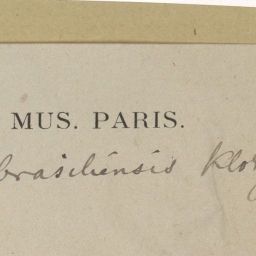 MUS. PARIS.
brasiliensis Klotz